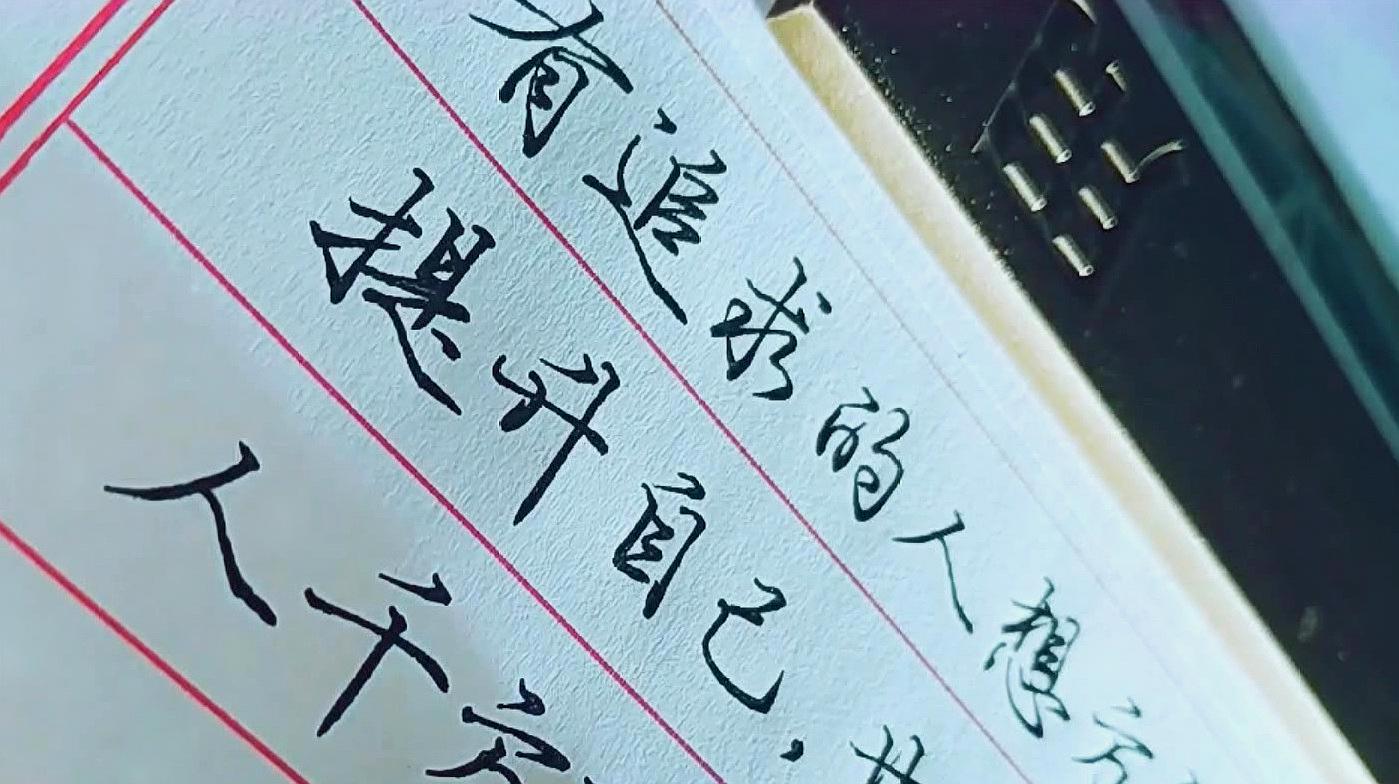 有追求的人想方
提升自己，
人千方